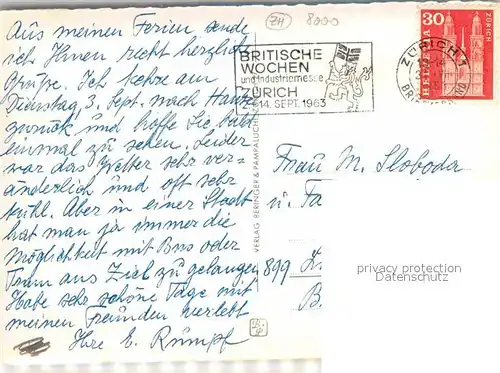 Aus meinen Ferien sende
ich Ihnen recht herzliche
Grüsse. Ich kehre am
Dienstag, 3. Sept. nach Hause
zurück und hoffe Sie bald
einmal zu sehen. Leider
war das Wetter sehr ver-
änderlich und oft sehr
kühl. Aber in einer Stadt
hat man ja immer die
Möglichkeit mit Bus oder
Tram ans Ziel zu gelangen
Habe sehr schöne Tage mit
meinen Freunden verlebt
Ihre E. Rümpf
ZH 8000
BRITISCHE
WOCHEN
und Industriemesse
ZÜRICH
14. SEPT. 1963
ZÜRICH 1
30
HELVETIA
ZÜRICH
VERLAG BERINGER & PAMPALUCHI
Frau M. Sloboda
u. Fa
899
privacy protection
Datenschutz